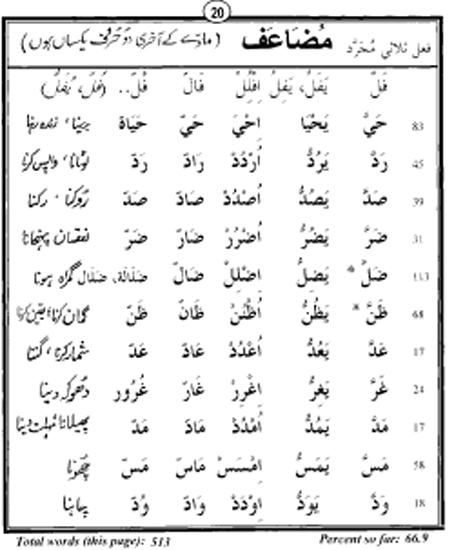 20
فعل ثلاثی مُجَرَّد مُضَاعَف (مادّے کے آخری دو حُرُوف یکساں ہوں)
فَلَّ يَفَلُّ، يَفِلُّ اِفْلِلْ فَالّ فَلّ.. (فُلَّ، يُفَلُّ)
83 حَيَّ يَحْيَا اِحْيَ حَيّ حَيَاة جینا، زندہ رہنا
45 رَدَّ يَرُدُّ اُرْدُدْ رَادّ رَدّ لَوٹانا، واپس کرنا
39 صَدَّ يَصُدُّ اُصْدُدْ صَادّ صَدّ روکنا، رکنا
31 ضَرَّ يَضُرُّ اُضْرُرْ ضَارّ ضَرّ نقصان پہنچانا
113 ضَلَّ * يَضِلُّ اِضْلِلْ ضَالّ ضَلَالَة، ضَلَال گمراہ ہونا
68 ظَنَّ * يَظُنُّ اُظْنُنْ ظَانّ ظَنّ گمان کرنا، یقین کرنا
17 عَدَّ يَعُدُّ اُعْدُدْ عَادّ عَدّ شمار کرنا، گننا
24 غَرَّ يَغِرُّ اِغْرِرْ غَارّ غُرُور دھوکہ دینا
17 مَدَّ يَمُدُّ اُمْدُدْ مَادّ مَدّ پھیلانا مہلت دینا
58 مَسَّ يَمَسُّ اِمْسَسْ مَاسّ مَسّ چھونا
18 وَدَّ يَوَدُّ اِوْدَدْ وَادّ وُدّ چاہنا
Total words (this page): 513 Percent so far: 66.9